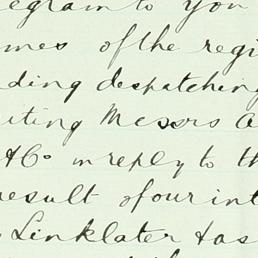 egram to you
mes of the regi
ding despatching
iting Messrs A
& Co in reply to th
result of our int
Linklater has